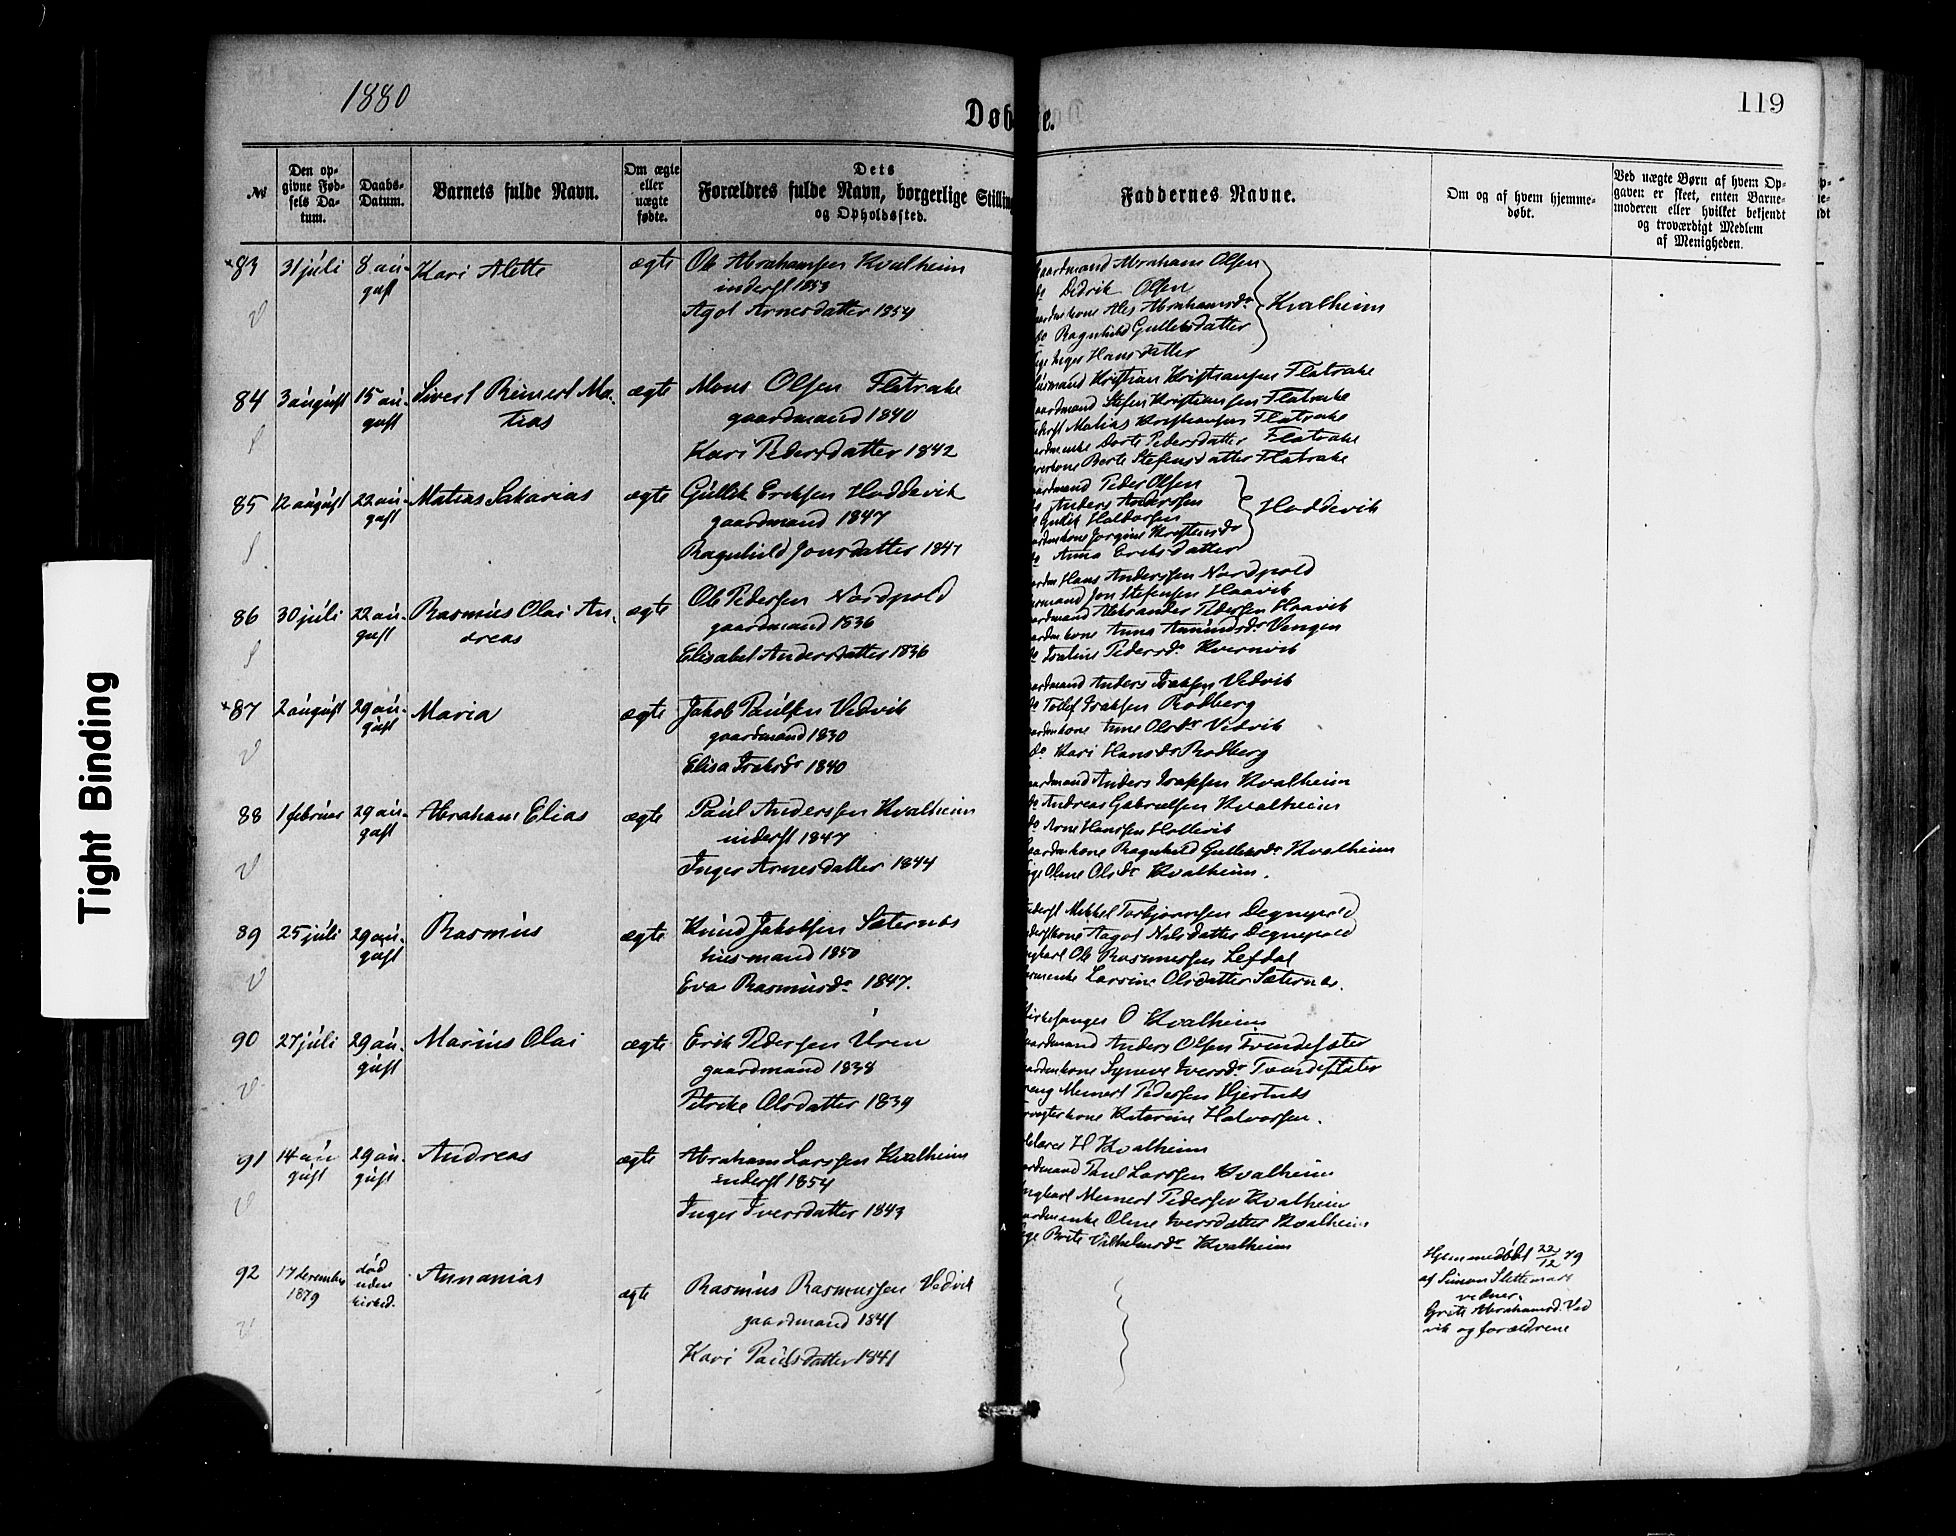 1880
Døbte.
119
№
Den op-
givne Fød-
sels Da-
tum.
Daabs-
Datum.
Barnets fulde Navn.
Om ægte
eller
uægte
fødte.
Dets
Forældres fulde Navn, borgerlige Stilling
og Opholdssted.
Faddernes Navne.
Om og af hvem hjemme-
døbt.
Ved uægte Børn af hvem Op-
gaven er skeet, enten Barne-
moderen eller hvilket bekjendt
og troværdigt Medlem
af Menigheden.
×83 31 júli 8 aú- Kari Alette ægte Ole Abrahamsen Kvalheim
gúst inderst 1853
Agot Arnesdatter 1854
aardmand Abraham Olsen
do Didrik Olsen
aardmkone Ales Abrahamsdr Kvalheim
do Ragnhild Gulleksdatter
Inger Hansdatter
84 3 aúgúst 15 aú- Sivert Reinert Ma- ægte Mons Olsen Flatrake
gúst tias gaardmand 1840
Kari Pedersdatter 1842
úsmand Kristian Kristiansen Flatrake
aardmand Stefen Kristiansen Flatrake
inderst Matias Kristiansen Flatrake
aardmenke Dorte Pedersdatter Flatrake
Berte Stefensdatter Flatrake
85 12 aúgúst 22 aú- Matias Sakarias ægte Gúllik Eriksen Hoddevik
gúst gaardmand 1847
Ragnhild Jonsdatter 1847
aardmand Peder Olsen
do Anders Anderssen
Gullik Haldorsen Hoddevik
aardmkone Jorgine Kristensdr
do Anna Eriksdatter
86 30 júli 22 aú- Rasmús Olai An- ægte Ole Pedersen Nordpold
gúst dreas gaardmand 1836
Elisabet Andersdatter 1836
aardm Hans Anderssen Nordpold
aardmand Jon Stefensen Haavik
aardmand Aleksander Pedersen Haavik
aardmkone Anna Amúndsdr Vengen
do Pedersd. Kvernvik
×87 2 aúgúst 29 aú- Maria ægte Jakob Paúlsen Vedvik
gúst gaardmand 1830
Elisa Isaksdr 1840
aardmand Anders Isaksen Vedvik
do Tollef Isaksen Rødberg
aardmkone Anne Olsdr Vedvik
do Kari Hansdr Rødberg
88 1 febrúar 29 aú- Abraham Elias ægte Paúl Anderssen Kvalheim
gúst inderst 1847
Inger Arnesdatter 1844
aardmand Anders Isaksen Kvalheim
do Andreas Gabrielsen Kvalheim
do Arne Hanssen Hollevik
aardmkone Ragnhild Gulleksdr Kvalheim
ige Oline Olsdr Kvalheim.
89 25 júli 29 aú- Rasmús ægte Knúd Jakobsen Sæternes
gúst húsmand 1850
Eva Rasmúsdr 1847.
inderst Mikkel Torbjørnsen Degnepold
inderstkone Aagot Nilsdatter Degnepold
ngkarl Ole Rasmussen Lefdal
Larsine Olsdatter Sæternes.
90 27 júli 29 aú- Marius Olai ægte Erik Pedersen Úren
gúst gaardmand 1838
Petrike Olsdatter 1839
Kirkesanger O Kvalheim
aardmand Anders Olsen Tvindesæter
aardmkone Synneve Iversdr Tvindesæter
reng Meinert Pedersen Hjertnes
Katerine Halvorsen.
91 14 aú- 29 aú- Andreas ægte Abraham Larssen Kvalheim
gúst gúst inderst 1854
Inger Iversdatter 1843
H Kvalheim
aardmand Paul Larssen Kvalheim
ngkarl Meinert Pedersen Kvalheim
aardmenke Oline Iversdatter Kvalheim
ige Berte Vilhelmsdr Kvalheim
92 17 december død Annanias ægte Rasmús Rasmussen Vedvik
1879 uden gaardmand 1841
kirked. Kari Paúlsdatter 1841
Hjemmedøbt 22/12 79
af Simon Slettemark
vidner.
Grete Abrahamsd. Ved
vik og forældrene
Tight Binding